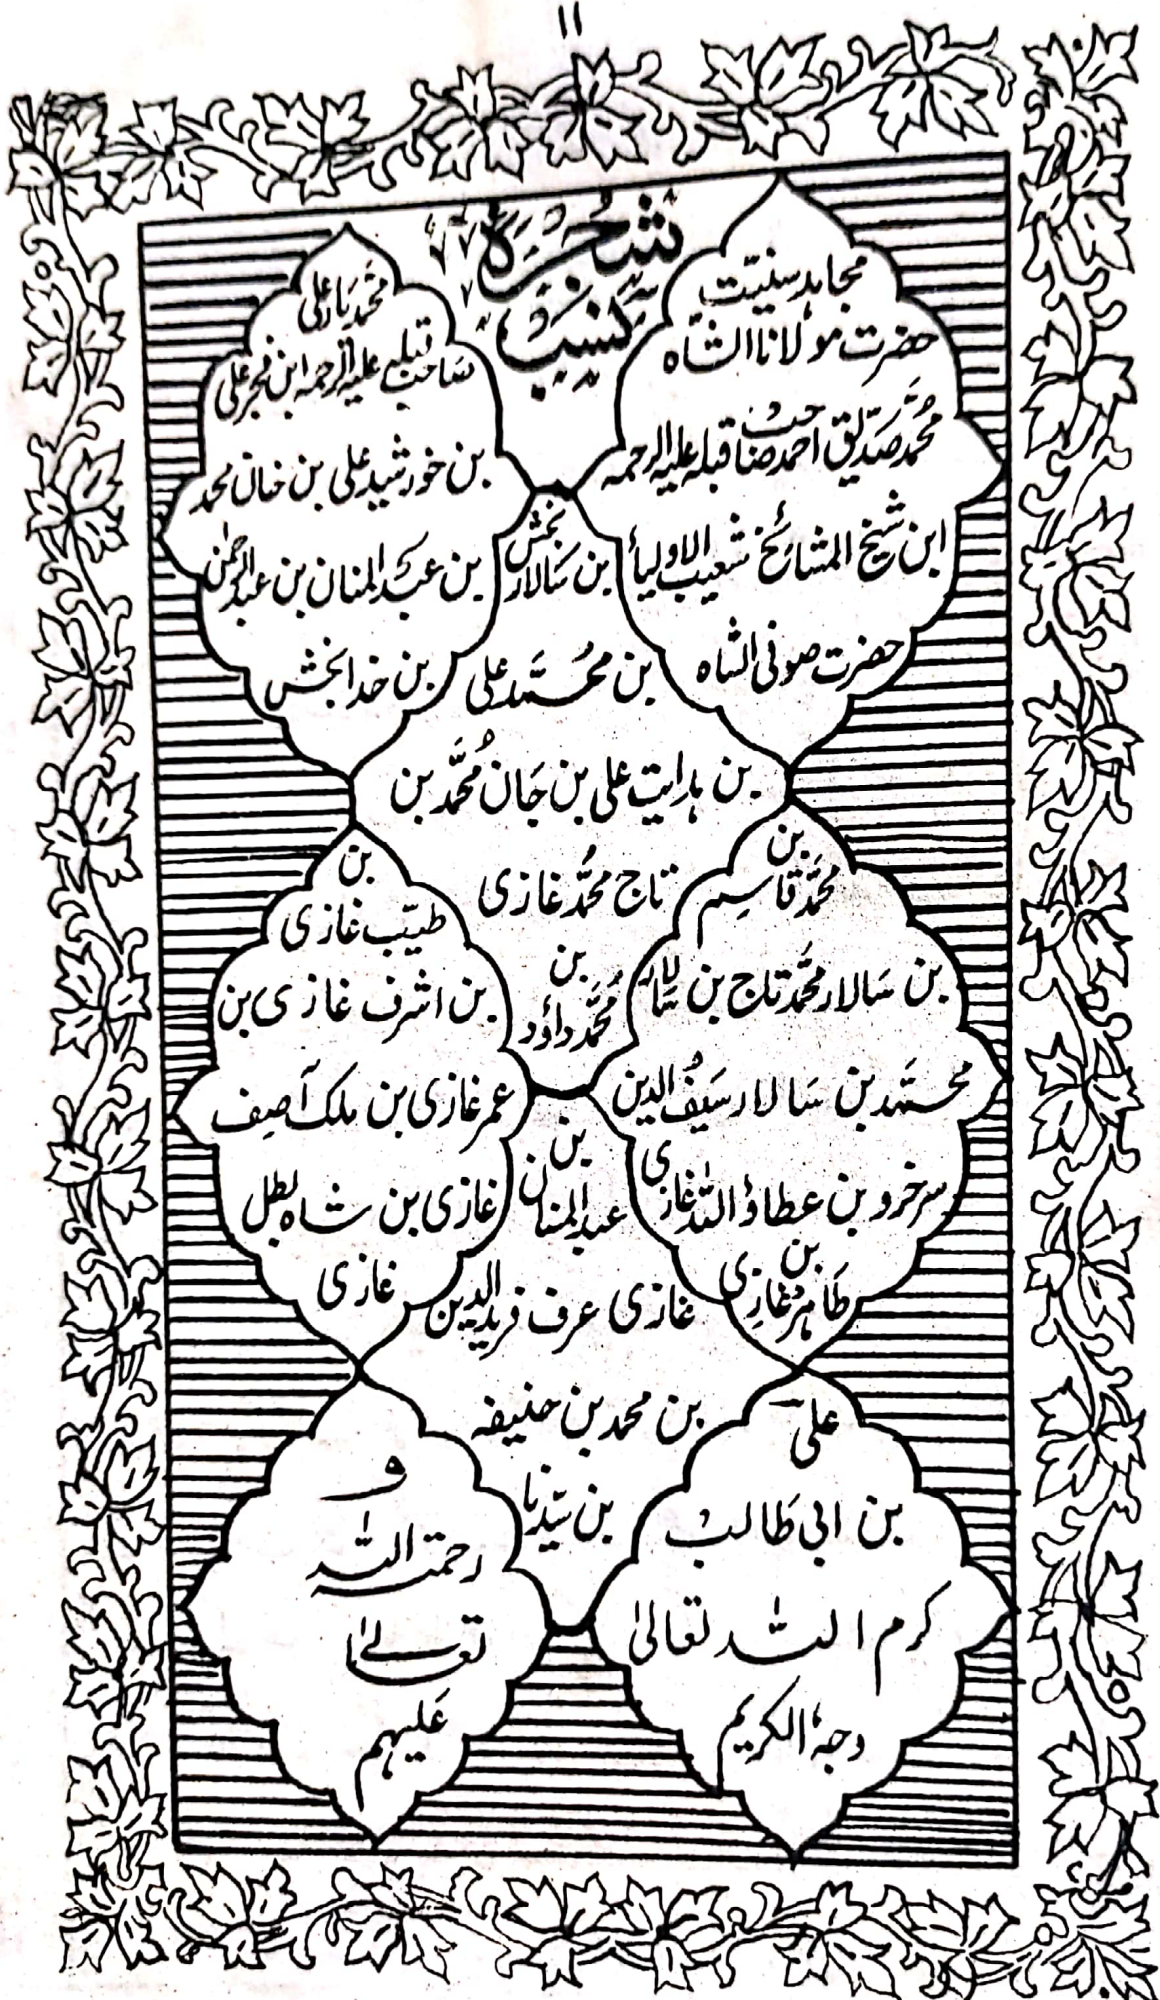 ۱۱
شجرہ
نسب
مجاہد سنیت
حضرت مولانا الشاہ
محمد صدیق احمد صاحب قبلہ علیہ الرحمہ
ابن شیخ المشائخ شعیب الاولیاء
حضرت صوفی الشاہ
محمد یار علی
صاحب قبلہ علیہ الرحمہ ابن فجر علی
بن خورشید علی بن خان محمد
بن عبد المنان بن عبد الرحمٰن
بن خدا بخش
بن سالار بخش
بن محمد علی
بن ہدایت علی بن جان محمد بن
تاج محمد غازی
بن
محمد داؤد
بن
محمد قاسم
بن سالار محمد تاج بن سالار
محمد بن سالار سیف الدین
سرخرو بن عطاؤ اللہ غازی
بن
طاہر غازی
بن
طیب غازی
بن اشرف غازی بن
عمر غازی بن ملک آصف
غازی بن شاہ بطل
غازی
بن
عبد المنان
غازی عرف فرید الدین
بن محمد بن حنیفہ
بن سیدنا
علی
بن ابی طالب
کرم اللہ تعالیٰ
وجہہ الکریم
و
رحمۃ اللہ
تعالیٰ
علیہم